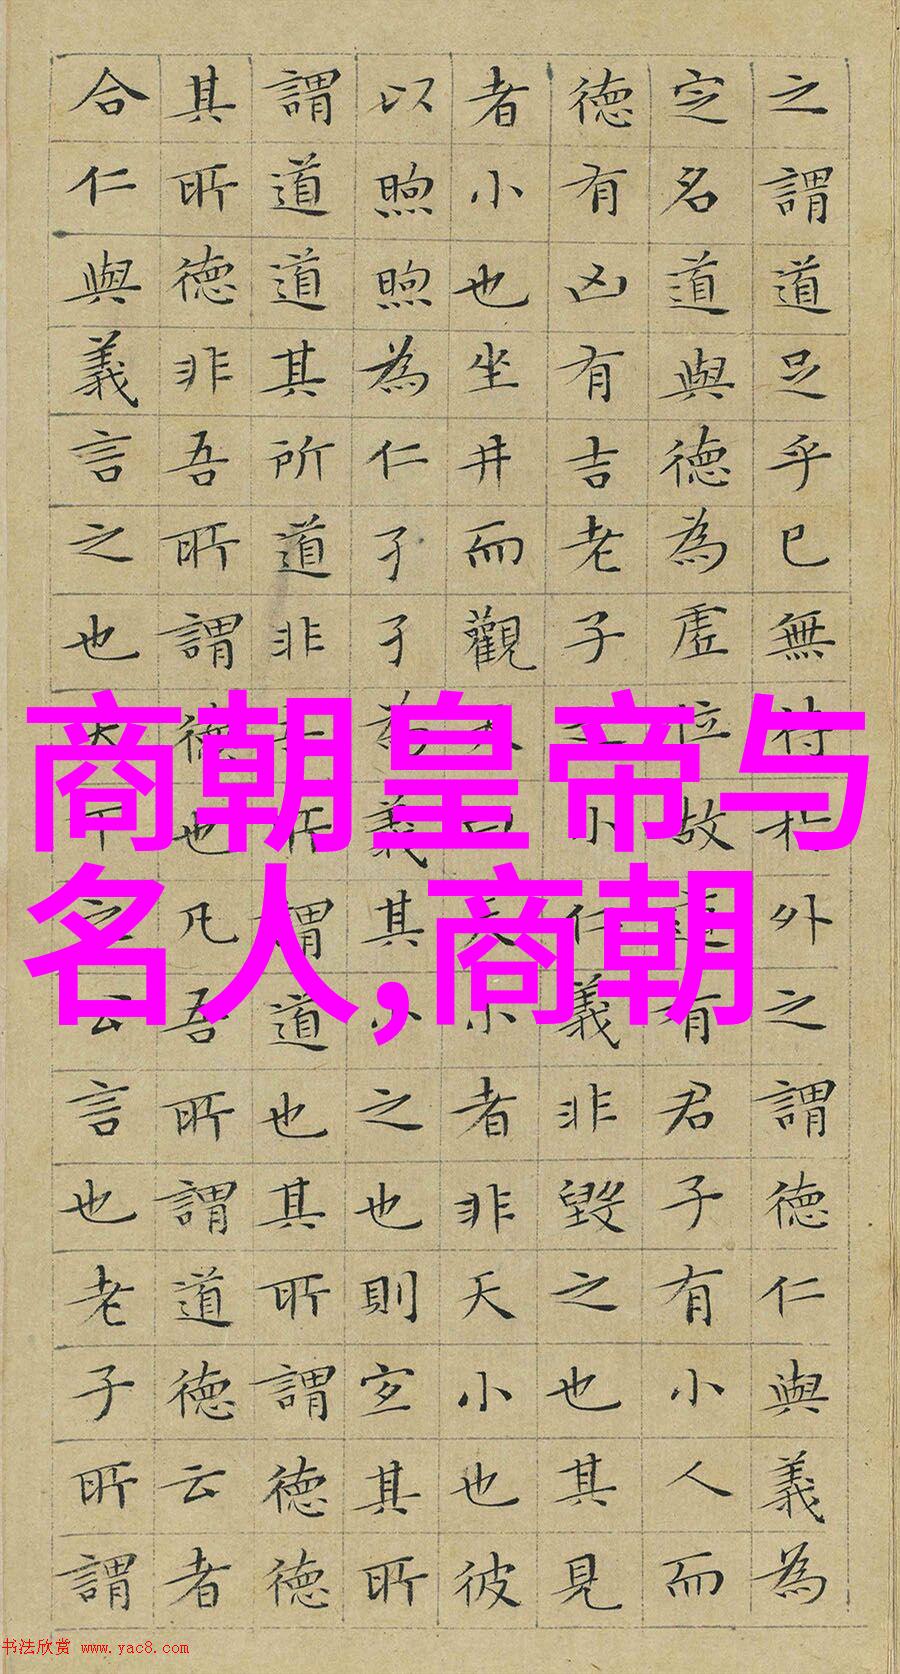 之謂道足乎已無待於外之謂徳仁與義為
定名道與徳為虛位故道有君子有小人而
徳有凶有吉老子之小仁義非毀之也其見
者小也坐井而觀天曰天小者非天小也彼
以煦煦為仁孑孑為義其小之也則宜其所
謂道道其所道非吾所謂道也其所謂徳徳
其所徳非吾所謂徳也凡吾所謂道徳云者
合仁與義言之也天下之公言也老子所謂
商朝皇帝与
名人,商朝
书法欣赏 www.yac8.com